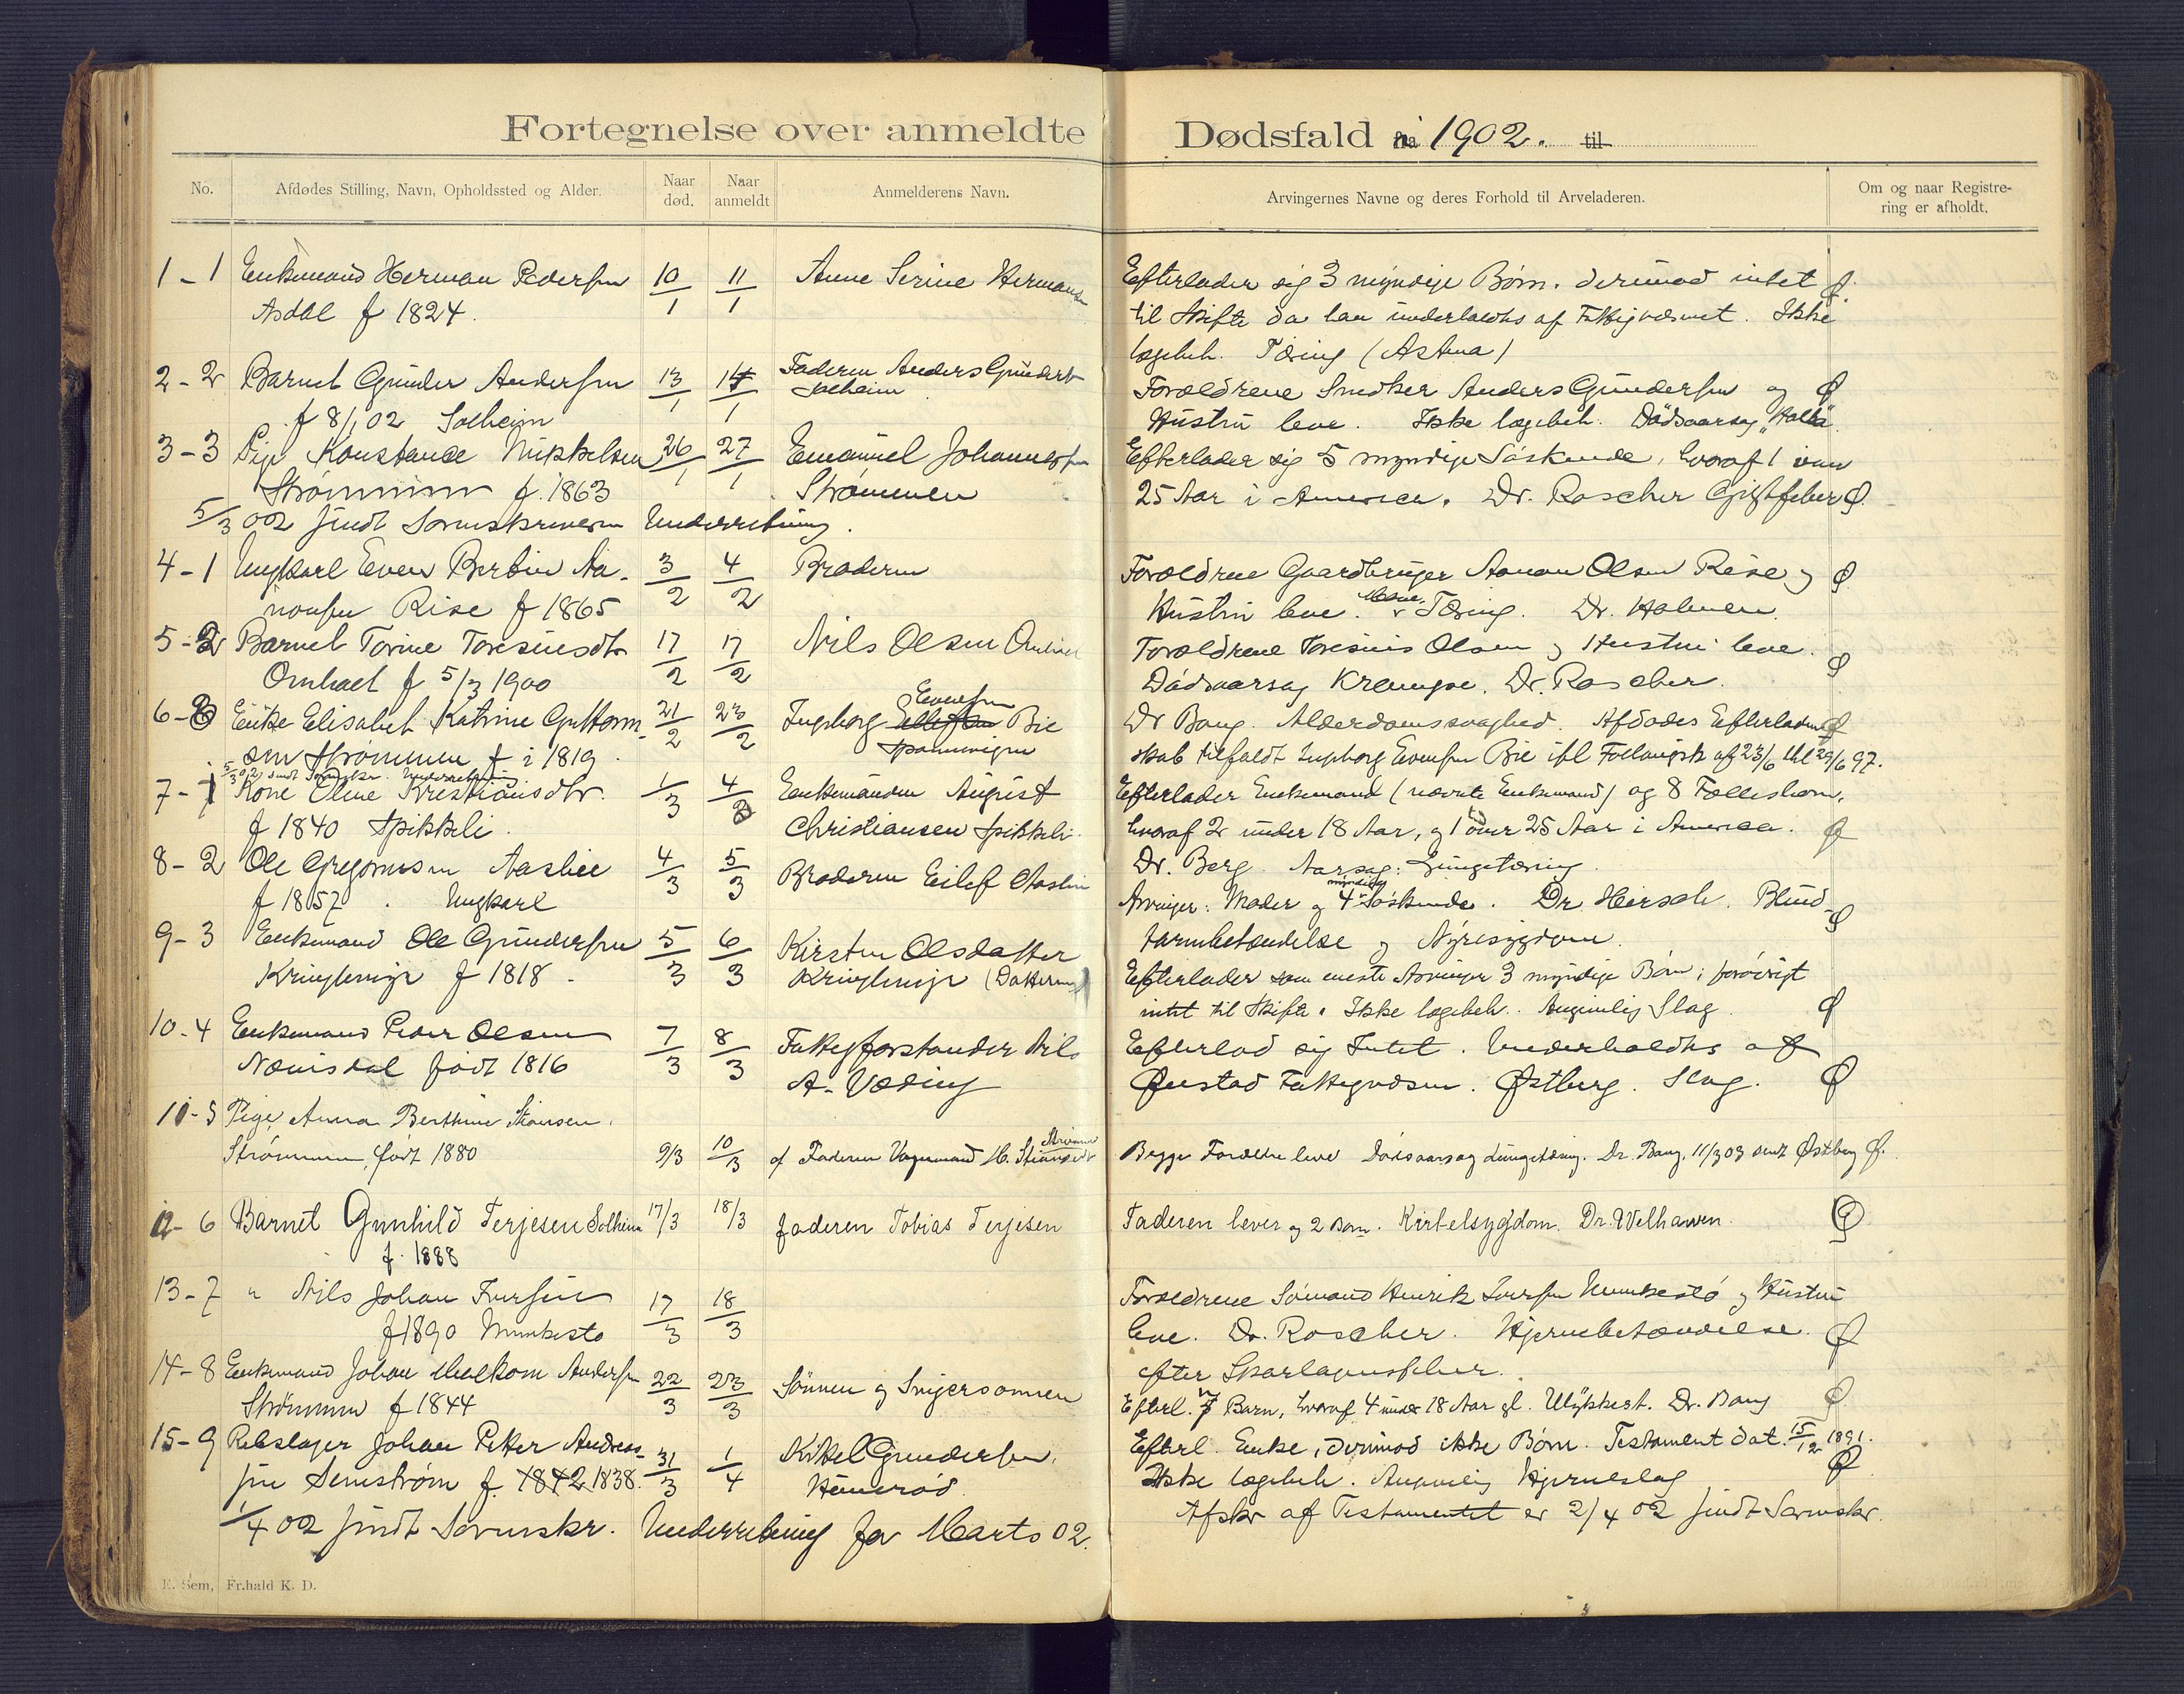 Fortegnelse over anmeldte Dødsfald i 1902. til
No.
Afdødes Stilling, Navn, Opholdssted og Alder.
Naar død.
Naar anmeldt
Anmelderens Navn.
Arvingernes Navne og deres Forhold til Arveladeren.
Om og naar Registrering er afholdt.
1 - 1 Enkemand Herman Pedersen 10/1 11/1 Anne Serine Hermansen
Asdal f 1824.
Efterlader sig 3 myndige Børn. derimod intet
til Skifte da han underholdtes af Fattigvæsnet. Ikke
lægebeh. Tæring (Astma)
2 - 2 Barnet Gunder Andersen 13/1 14/1 Faderen Anders Gunders
f 8/1 02 Solheim Solheim
Forældrene Snedker Anders Gundersen og
Hustru leve. Ikke lægebeh. Dødsaarsag
3 - 3 Pige Konstance Mikkelsen 26/1 27/1 Emanuel Johannesen
Strømmen f. 1863 Strømmen
5/3 02 sendt Sorenskriveren Underretning.
Efterlader sig 5 myndige Søskende, hvoraf 1 over
25 Aar i America. Dr. Roscher Gigtfeber
4 - 1 Ungkarl Even Bertin Aa-
nonsen Rise f 1865 3/2 4/2 Broderen
Forældrene Gaardbruger Aanon Olsen Rise og
Hustru leve. Tæring. Dr. Holmen.
5 - 2 Barnet Torine Toresiusdtr 17/2 17/2 Nils Olsen
f 5/3 1900
Forældrene Toresius Olsen og Hustru leve.
Dødsaarsag Krampe. Dr. Roscher.
6 - 3 Enke Elisabet Katrine Guttorm- 21/2 23/2 Ingeborg Evensen Bie
sen Strømmen f i 1819.
5/3 02 sendt Sorenskr. Underretning
Dr Bang. Alderdomssvaghed. Afdødes Efterladen-
skab tilfaldt Ingeborg Evensen Bie ifl 23/6 97.
7 - 1 Kone Oline Kristiansdtr. 1/3 4/3 Enkemanden August
f 1840 Spikkeli. Christiansen Spikkeli.
Efterlader Enkemand (nævnte Enkemand) og 8 Fællesbørn,
hvoraf 2 under 18 Aar, og 1 over 25 Aar i America.
Dr. Berg Aarsag: Lungetæring
8 - 2 Ole Gregorius n Aaslie 4/3 5/3 Broderen Eilef Aaslie
f 1857. Ungkarl
Arvinger: Moder og 4 myndige Søskende. Dr. Hirsch. Blind-
tarmbetændelse og Nyresygdom.
9 - 3 Enkemand Ole Gundersen 5/3 6/3 Kirsten Olsdatter
f 1818 (Datteren)
Efterlader som eneste Arvinger 3 myndige Børn; forøvrigt
intet til Skifte. Ikke lægebeh. Slag
10 - 4 Enkemand Peder Olsen 7/3 8/3 Fattigforstander Nils
Næsvisdal født 1816 A. Væding
Efterlod sig Intet. Underholdtes af
Øiestad Fattigvæsen. Østberg. Slag.
11 - 5 Pige Anna Berthine Stiansen.
Strømmen, født 1880 9/3 10/3 af Faderen Vognmand H. Stiansen
Begge Forældre leve Dødsaarsag Lungetæring. Dr. Bang. 11/3 03 sendt Østberg
12 - 6 Barnet Gunhild Terjesen Solheim 17/3 18/3 faderen Tobias Terjesen
f. 1888
Faderen lever og 2 Børn. Kirtelsygdom. Dr. Welhaven.
13 - 7 " Nils Johan Iversen 17/3 18/3
f 1890
Forældrene Sømand Henrik Iversen og Hustru
leve. Dr. Roscher. Hjernebetændelse
efter Skarlagensfeber.
14 - 8 Enkemand Johan Malkom Andersen 22/3 23/3 Sønnen og Svigersønnen
Strømmen f 1844
Efterl. 7 Børn, hvoraf 4 under 18 Aar gl. Ulykkest. Dr. Bang
15 - 9 Rebslager Johan Peter Andreas-
sen Senstrøm f. 1842 1838. 31/3 1/4 Kittel Gundersen,
Efterl. Enke, derimod ikke Børn. Testament dat. 15/12 1891.
Ikke lægebeh. Hjerneslag
1/4 02 sendt Sorenskr. Underretning for Marts 02.
Afskr af Testamentet er 2/4 02 sendt Sorenskr.
E. Sem, Fr.hald K. D.